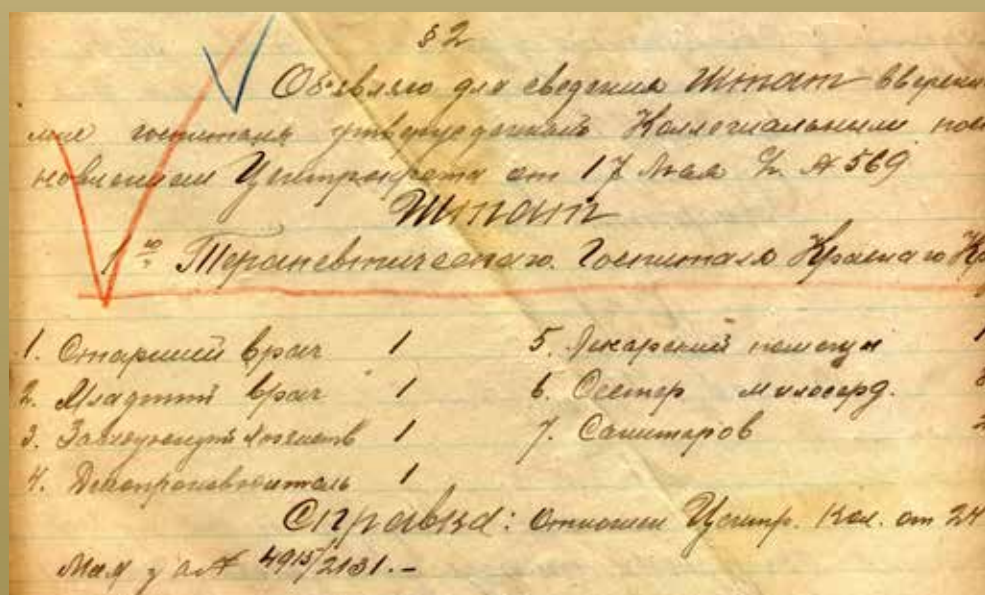 § 2
Объявляю для сведения Штат вверен
мне госпиталь утвержденный Коллегиальным пос
новлением Центрокрота от 17 Мая № 569
Штат
1го Терапевтическаго Госпиталя Краснаго Кр
1. Старший врач 1
2. Младший врач 1
3. Заведующий хозяйств 1
4. Делопроизводитель 1
5. Лекарский помощн 1
6. Сестер милосерд. 3
7. Санитаров 2
Справка: Отношен Центр. Кол. от 24
Мая за № 4915/2131.-